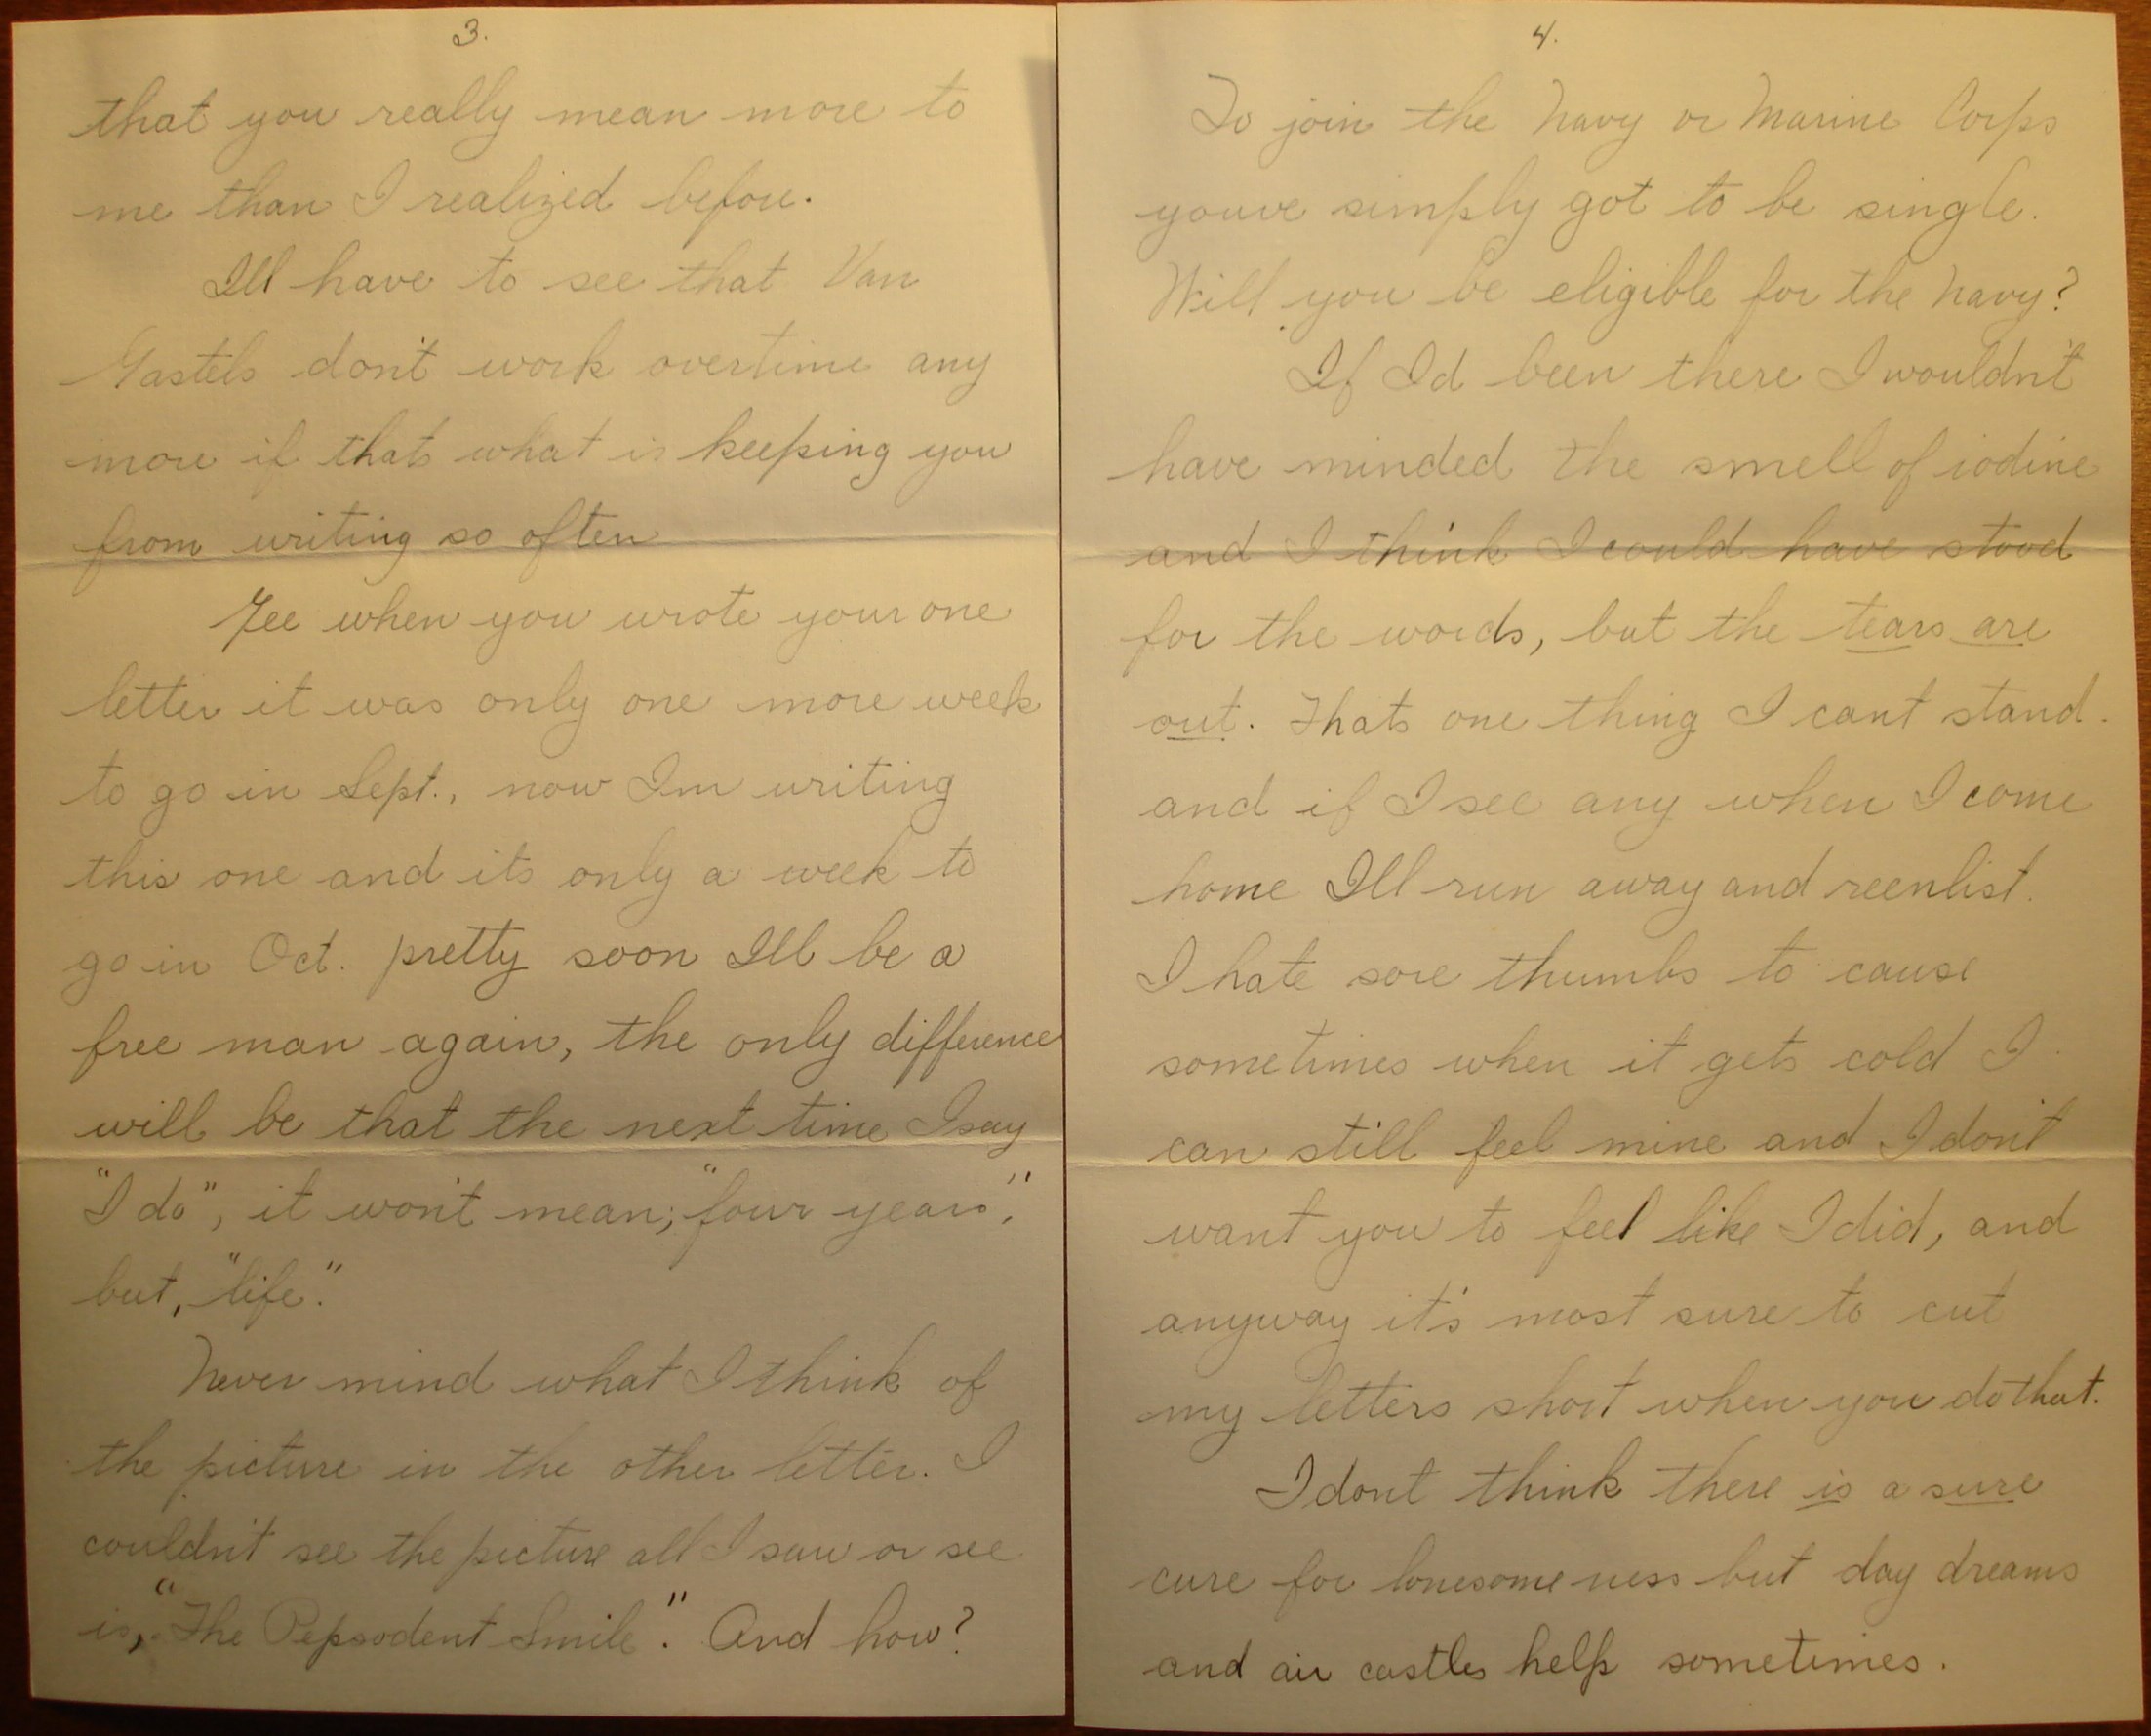 3.
that you really mean more to
me than I realized before.
Ill have to see that Van
Gastels don't work overtime any
more if thats what is keeping you
from writing so often
Gee when you wrote your one
letter it was only one more week
to go in Sept., now Im writing
this one and its only a week to
go in Oct. pretty soon Ill be a
free man again, the only difference
will be that the next time I say
"I do", it won't mean; "four years",
but, "life".
Never mind what I think of
the picture in the other letter. I
couldn't see the picture all I saw or see
is, "The Pepsodent Smile". And how?
4.
To join the Navy or Marine Corps
youve simply got to be single.
Will you be eligible for the Navy?
If Id been there I wouldn't
have minded the smell of iodine
and I think I could have stood
for the words, but the tears are
out. Thats one thing I cant stand.
and if I see any when I come
home Ill run away and reenlist.
I hate sore thumbs to cause
sometimes when it gets cold I
can still feel mine and I don't
want you to feel like I did, and
anyway it's most sure to cut
my letters short when you do that.
I dont think there is a sure
cure for lonesomeness but day dreams
and air castles help sometimes.